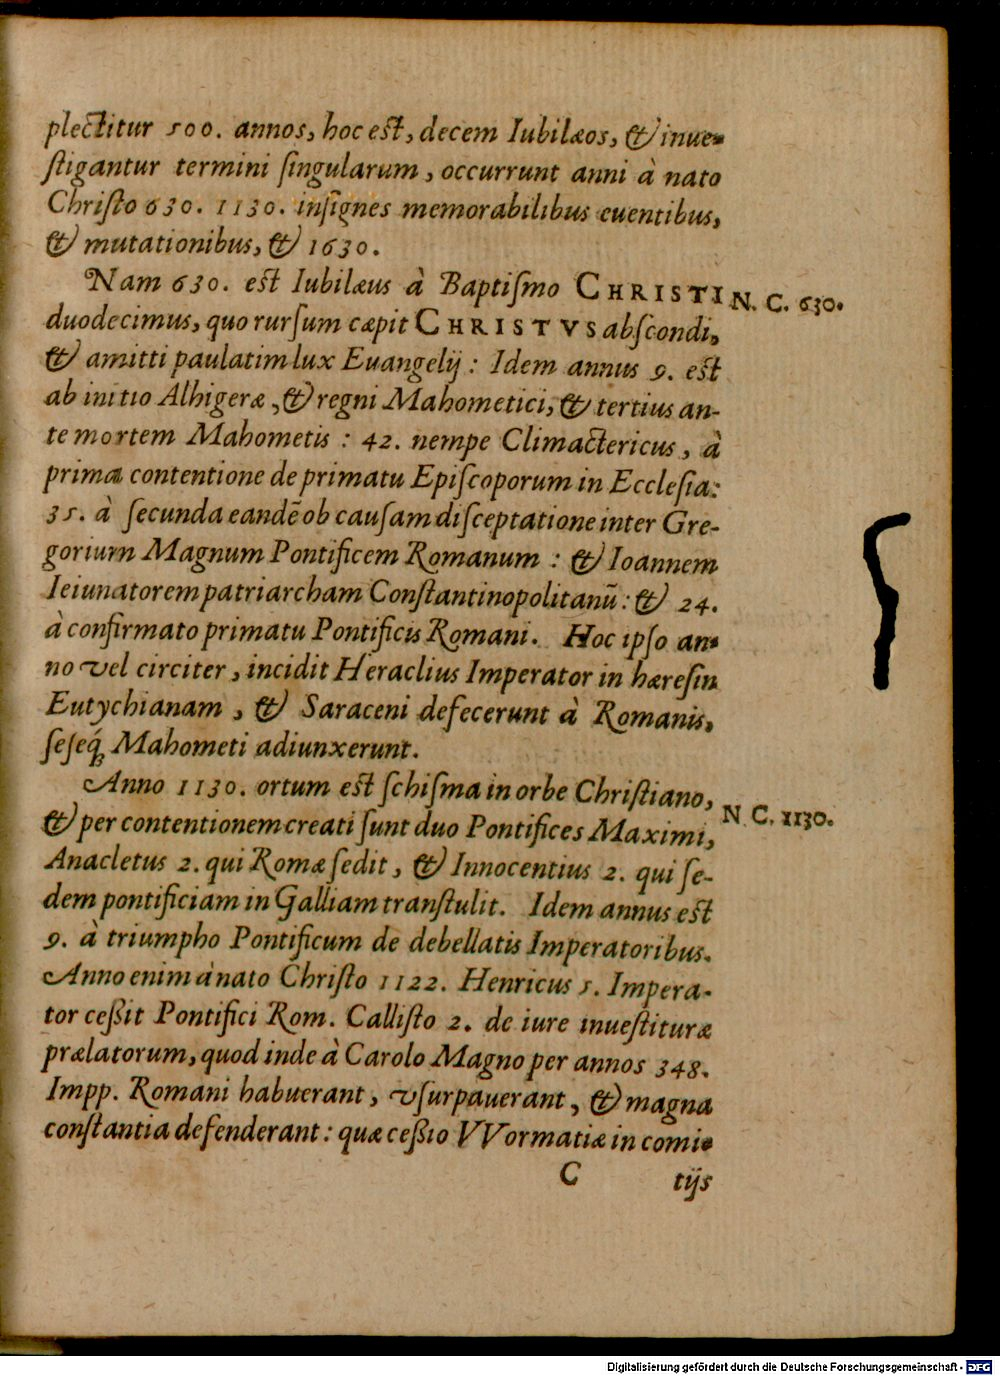 plectitur 500. annos, hoc est, decem Iubilæos, & inue-
ſtigantur termini ſingularum, occurrunt anni à nato
Chriſto 630. 1130. inſignes memorabilibus euentibus,
& mutationibus, & 1630.
Nam 630. est Iubilæus à Baptiſmo CHRISTI N. C. 630.
duodecimus, quo rurſum cæpit CHRISTVS abſcondi,
& amitti paulatim lux Euangelij: Idem annus 9. est
ab initio Alhigeræ, & regni Mahometici, & tertius an-
te mortem Mahometis: 42. nempe Climactericus, à
prima contentione de primatu Epiſcoporum in Eccleſia:
35. à ſecunda eandē ob cauſam diſceptatione inter Gre-
gorium Magnum Pontificem Romanum: & Ioannem
Ieiunatorem patriarcham Conſtantinopolitanū: & 24.
à confirmato primatu Pontificis Romani. Hoc ipſo an-
no vel circiter, incidit Heraclius Imperator in hæreſin
Eutychianam, & Saraceni defecerunt à Romanis,
ſeſeq́ꝫ Mahometi adiunxerunt.
Anno 1130. ortum est ſchiſma in orbe Chriſtiano,
& per contentionem creati ſunt duo Pontifices Maximi, N. C. 1130.
Anacletus 2. qui Romæ ſedit, & Innocentius 2. qui ſe-
dem pontificiam in Galliam tranſtulit. Idem annus est
9. à triumpho Pontificum de debellatis Imperatoribus.
Anno enim à nato Chriſto 1122. Henricus 5. Impera-
tor ceßit Pontifici Rom. Calliſto 2. de iure inueſtituræ
prælatorum, quod inde à Carolo Magno per annos 348.
Impp. Romani habuerant, vſurpauerant, & magna
conſtantia defenderant: quæ ceßio VVormatiæ in comi-
C tijs
Digitalisierung gefördert durch die Deutsche Forschungsgemeinschaft - DFG